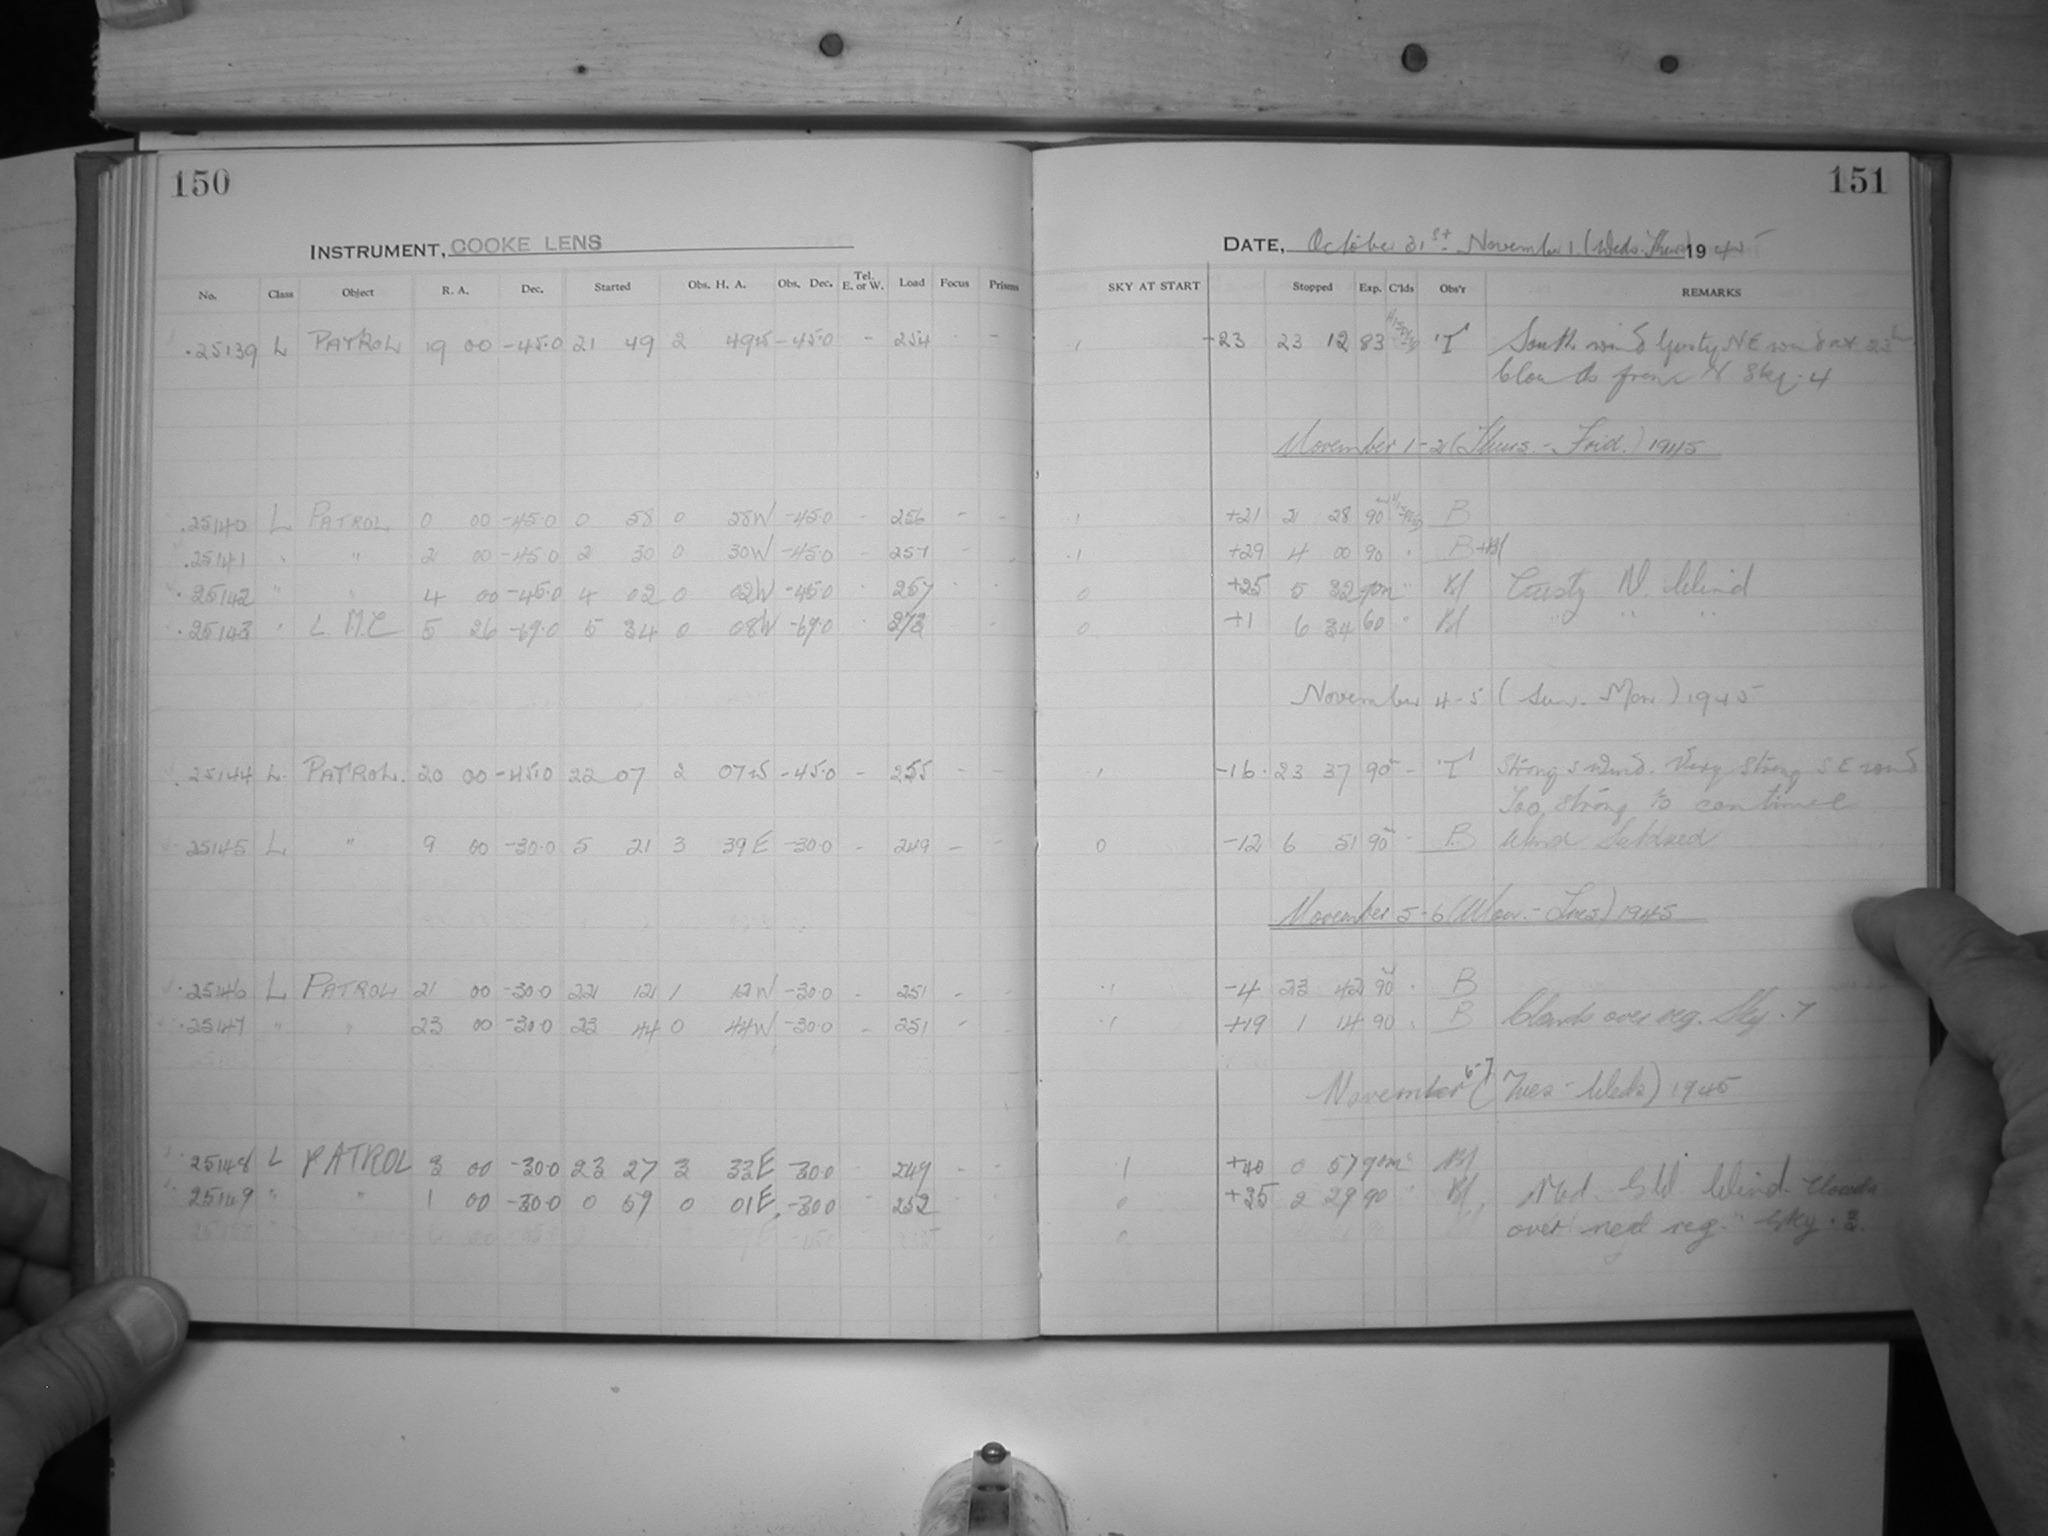 150
151
INSTRUMENT, COOKE LENS
DATE, October 31st - November 1. (Weds. Thurs) 1945
No. Class Object R. A. Dec. Started Obs. H. A. Obs. Dec. Tel. E. or W. Load Focus Prisms SKY AT START Stopped Exp. C'lds Obs'r REMARKS
25139 L PATROL 19 00 -45.0 21 49 2 49 -45.0 - 254 - - 1 -23 23 12 83 'T' South wind Gusty NE wind at 23h
Clouds from N Sky .4
November 1-2 (Thurs. - Frid.) 1945
25140 L PATROL 0 00 -45.0 0 58 0 58W -45.0 - 256 - - .1 +21 2 28 90 B
25141 " " 2 00 -45.0 2 30 0 30W -45.0 - 257 - - .1 +29 4 00 90 " B+Bl
25142 " " 4 00 -45.0 4 02 0 02W -45.0 - 257 0 +25 5 32 90m " Bl Gusty N. Wind
25143 " L.M.C 5 26 -69.0 5 34 0 08W -69.0 273 0 +1 6 34 60 " Bl " " "
November 4-5 (Sun. - Mon) 1945
25144 L. PATROL. 20 00 -45.0 22 07 2 07 -45.0 - 255 - - 1 -16 23 37 90 - 'T' Strong S wind. Very strong S E wind
Too strong to continue
25145 L " 9 00 -30.0 5 21 3 39E -30.0 - 249 - - 0 -12 6 51 90 - B Wind Subdued
November 5-6 (Mon. - Tues) 1945
25146 L PATROL 21 00 -30.0 22 12 1 12W -30.0 - 251 - - .1 -4 23 42 90 B
25147 " " 23 00 -30.0 23 44 0 44W -30.0 - 251 - - .1 +19 1 14 90 B Clouds over reg. Sky .7
November 6-7 (Tues - Weds) 1945
25148 L PATROL 3 00 -30.0 23 27 3 33E -30.0 249 - - 1 +40 0 57 90m Bl
25149 " " 1 00 -30.0 0 59 0 01E -30.0 252 0 +35 2 29 90 " Bl Mod. SW Wind. Clouds
over next reg. Sky .3.